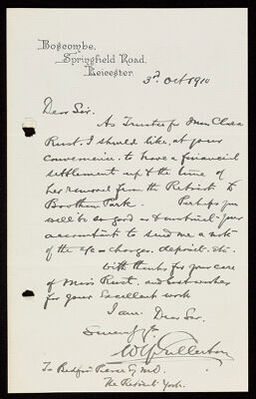 Boscombe,
Springfield Road,
Leicester.
3d. Oct 1910
Dear Sir.
As Trustee for Miss Clara
Rust. I should like, at your
convenience. to have a financial
settlement up to the time of
her removal from the Retreat to
Bootham Park. Perhaps you
will be so good as to instruct your
accountant to send me a note
of the a/c - charges. deposit. etc.
With thanks for your care
of Miss Rust, and best wishes
for your excellent work
I am. Dear Sir.
Sincerely yrs.
W Y Fullerton
To Bedford Pierce Esq M.D.
The Retreat York.